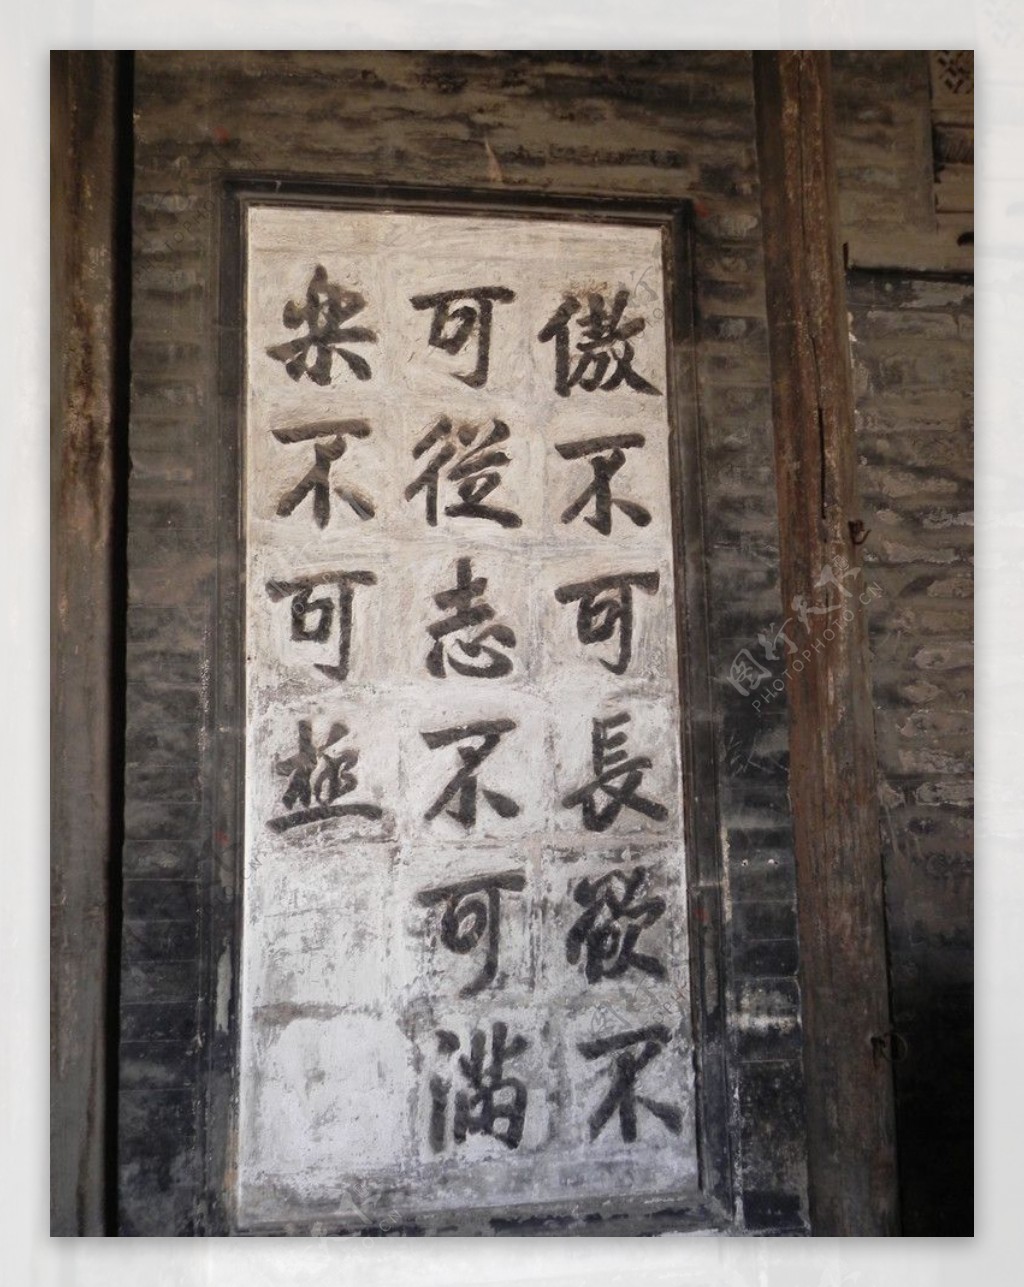 傲不可長欲不
可從志不可滿
樂不可極
图行天下
PHOTOPHOTO.CN